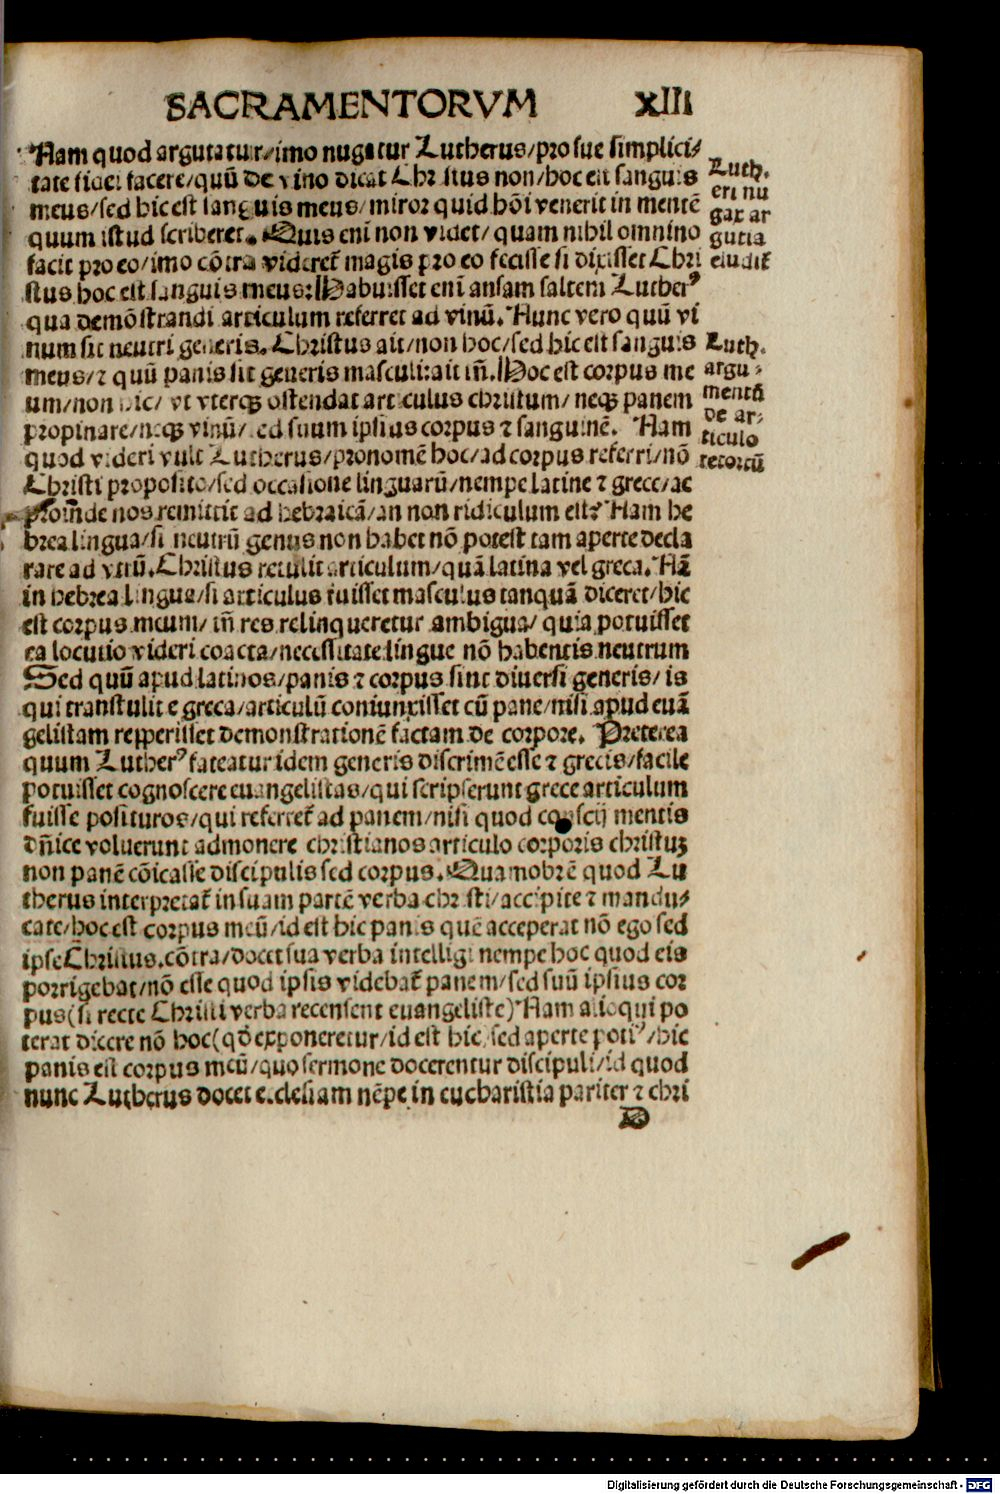 SACRAMENTORVM XIII
Nam quod argutatur/imo nugatur Lutherus/pro sue simplici/
tate fidei facere/quū de vino dicat Christus non/hoc est sanguis
meus/sed hic est sanguis meus/miror quid hōi venerit in mentē
quum istud scriberet. Quis enī non videt/quam nihil omnino
facit pro eo/imo cōtra videret̄ magis pro eo fecisse si dixisset Chri
stus hoc est sanguis meus: Habuisset enī ansam saltem Lutherꝰ
qua demōstrandi articulum referret ad vinū. Nunc vero quū vi
num sit neutri generis. Christus ait/non hoc/sed hic est sanguis
meus/ꝛ quū panis sit generis masculi:ait tn̄. Hoc est corpus me
um/non hic/ vt vterqꝫ ostendat articulus christum/ neqꝫ panem
propinare/neqꝫ vinū/sed suum ipsius corpus ꝛ sanguinē. Nam
quod videri vult Lutherus/pronomē hoc/ad corpus referri/nō
Christi proposito/sed occasione linguarū/nempe latine ꝛ grece/ac
proin̄de nos remittit ad hebraicā/an non ridiculum est? Nam he
brea lingua/si neutrū genus non habet nō potest tam aperte decla
rare ad vtrū. Christus retulit articulum/quā latina vel greca. Nā
in hebrea lingua/si articulus fuisset masculus tanquā diceret/hic
est corpus meum/ tn̄ res relinqueretur ambigua/ quia potuisset
ea locutio videri coacta/necessitate lingue nō habentis neutrum
Sed quū apud latinos/panis ꝛ corpus sint diuersi generis/ is
qui transtulit e greca/articulū coniunxisset cū pane/nisi apud euā
gelistam repperisset demonstrationē factam de corpore. Preterea
quum Lutherꝰ fateatur idem generis discrimē esse ꝛ grecis/facile
potuisset cognoscere euangelistas/qui scripserunt grece articulum
fuisse posituros/qui referret̄ ad panem/nisi quod conscij mentis
dn̄ice voluerunt admonere christianos articulo corporis christuꝫ
non panē cōicasse discipulis sed corpus. Quamobrē quod Lu
therus interpretat̄ in suam partē verba christi/accipite ꝛ mandu/
cate/hoc est corpus meū/id est hic panis quē acceperat nō ego sed
ipse Christus.cōtra/docet sua verba intelligi nempe hoc quod eis
porrigebat/nō esse quod ipsis videbat̄ panem/sed suū ipsius cor
pus(si recte Christi verba recensent euangeliste) Nam alioqui po
terat dicere nō hoc(qd̄ exponeretur/id est hic/sed aperte potiꝰ/hic
panis est corpus meū/quo sermone docerentur discipuli/id quod
nunc Lutherus docet ecclesiam nēpe in eucharistia pariter ꝛ chri
D
Luth
eri nu
gax ar
gutia
eludit̄
Luth.
argu/
mentū
de ar/
ticulo
retortū
Digitalisierung gefördert durch die Deutsche Forschungsgemeinschaft - DFG